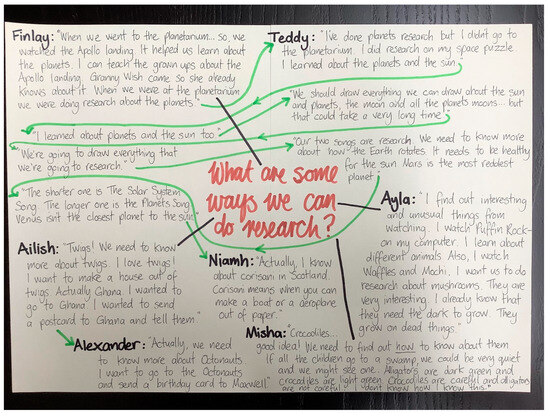 Finlay: "When we went to the planetarium... so we
watched the Apollo landing. It helped us learn about
the planets. I can teach the grown ups about the
Apollo landing. Granny Wish came so she already
knows about it. When we were at the planetarium
we were doing research about the planets."
Teddy: "I've done planets research but I didn't go to
the planetarium. I did research on my space puzzle
I learned about the planets and the sun."
"We should draw everything we can draw about the sun
and planets, the moon and all the planets moons... but
that could take a very long time"
"I learned about planets and the sun too"
"We're going to draw everything that
we're going to research."
"Our two songs are research. We need to know more
about how the Earth rotates. It needs to be healthy
for the sun. Mars is the most reddest
planet."
"The shorter one is The Solar System
Song. The longer one is the Planets Song
Venus isn't the closest planet to the sun."
What are some
ways we can
do research?
Ayla: "I find out interesting
and unusual things from
watching. I watch Puffin Rock
on my computer. I learn about
different animals. Also, I watch
Waffles and Mochi. I want us to do
research about mushrooms. They are
very interesting. I already know that
they need the dark to grow. They
grow on dead things."
Ailish: "Twigs! We need to know
more about twigs. I love twigs!
I want to make a house out of
twigs. Actually Ghana. I wanted to
go to Ghana. I wanted to send
a postcard to Ghana and tell them."
Niamh: "Actually, I know
about corisani in Scotland.
Corisani means when you can
make a boat or a aeroplane
out of paper."
Alexander: "Actually, we need
to know more about Octonauts
I want to go to the Octonauts
and send a birthday card to Maxwell"
Misha: "Crocodiles...
good idea! We need to find out how to know about them
If all the children go to a swamp, we could be very quiet
and we might see one. Alligators are dark green and
crocodiles are light green. Crocodiles are careful and alligators
are not careful. I don't know how I know this."